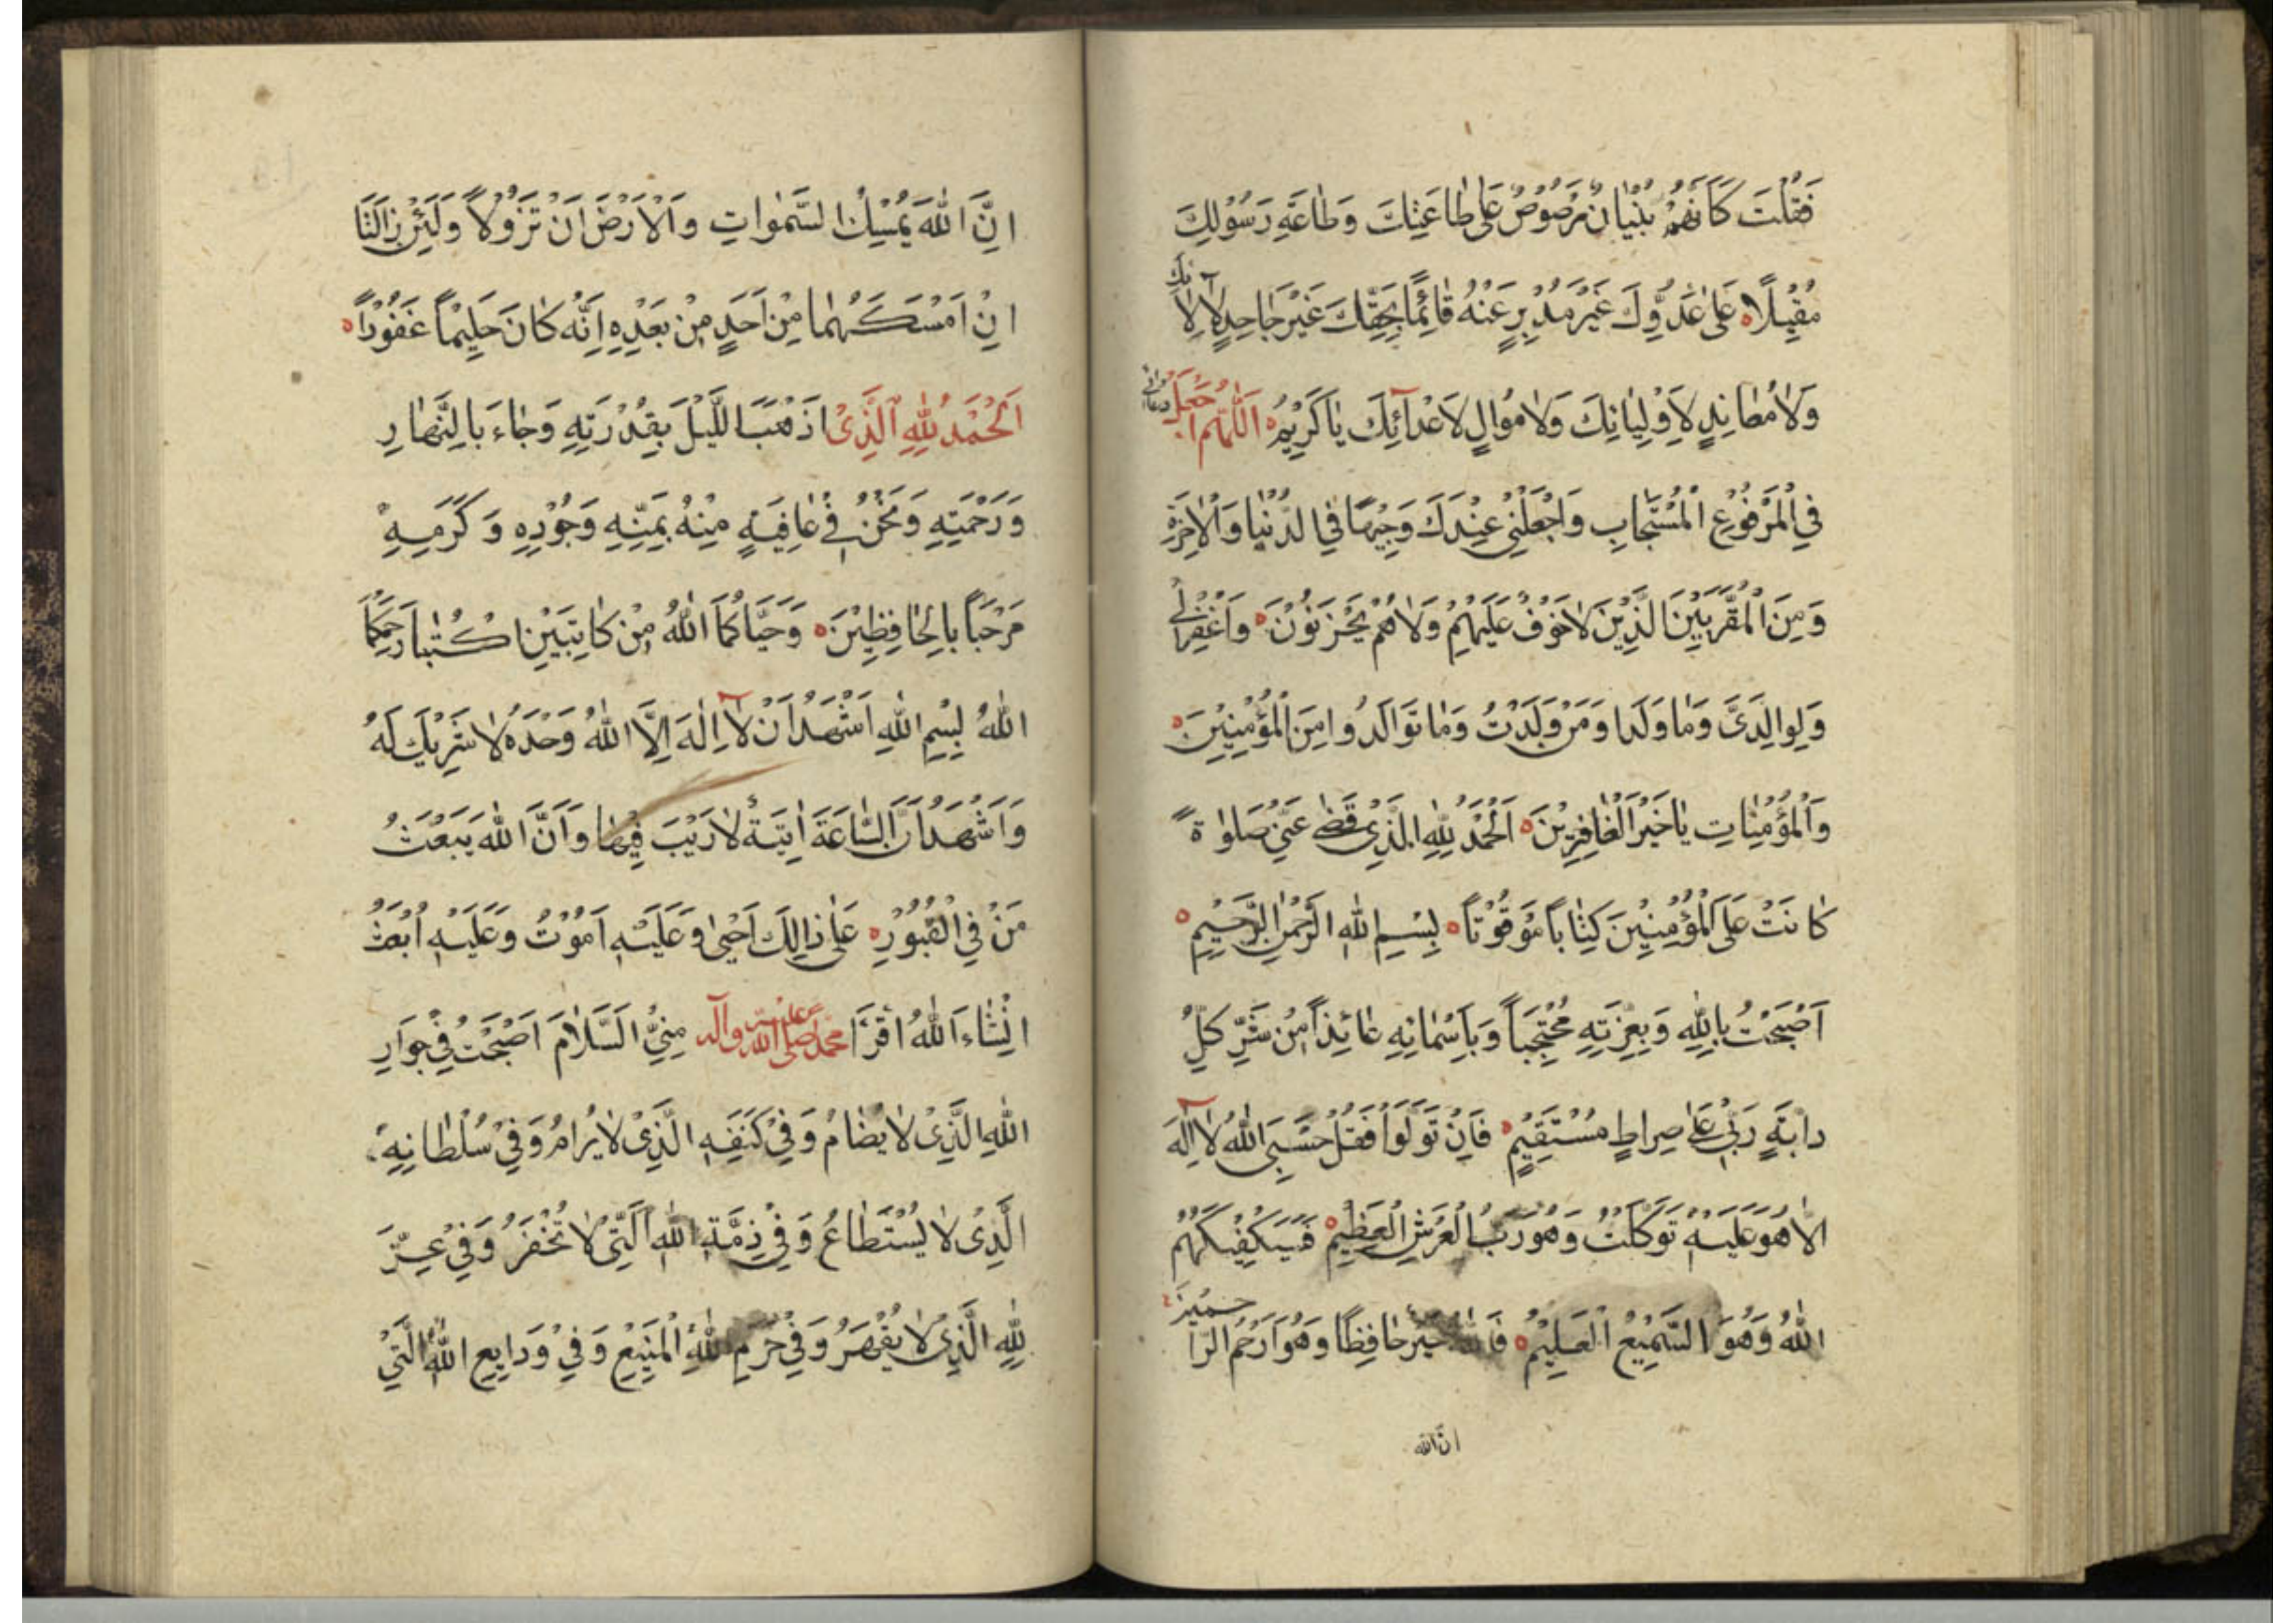 فَقُلْتَ كَاَنَّهُمْ بُنْيَانٌ مَرْصُوصٌ عَلٰى طَاعَتِكَ وَطَاعَةِ رَسُوْلِكَ
مُقْبِلًا عَلٰى عَدُوِّكَ غَيْرَ مُدْبِرٍ عَنْهُ قَائِمًا بِحَقِّكَ غَيْرَ جَاحِدٍ لِآلَائِكَ
وَلَا مُعَانِدٍ لِاَوْلِيَائِكَ وَلَا مُوَالٍ لِاَعْدَآئِكَ يَا كَرِيْمُ اَللّٰهُمَّ اجْعَلْ دعائى
فِي الْمَرْفُوْعِ الْمُسْتَجَابِ وَاجْعَلْنِيْ عِنْدَكَ وَجِيْهًا فِي الدُّنْيَا وَالْاٰخِرَةِ
وَمِنَ الْمُقَرَّبِيْنَ الَّذِيْنَ لَا خَوْفٌ عَلَيْهِمْ وَلَا هُمْ يَحْزَنُوْنَ وَاغْفِرْ لِيْ
وَلِوَالِدَيَّ وَمَا وَلَدَا وَمَنْ وَلَدْتُ وَمَا تَوَالَدُوا مِنَ الْمُؤْمِنِيْنَ
وَالْمُؤْمِنَاتِ يَا خَيْرَ الْغَافِرِيْنَ اَلْحَمْدُ لِلّٰهِ الَّذِيْ قَضٰى عَنِّيْ صَلٰوةً
كَانَتْ عَلَى الْمُؤْمِنِيْنَ كِتَابًا مَوْقُوْتًا بِسْمِ اللّٰهِ الرَّحْمٰنِ الرَّحِيْمِ
اَصْبَحْتُ بِاللّٰهِ وَبِعِزَّتِهِ مُحْتَجِبًا وَبِاَسْمَائِهِ عَائِذًا مِنْ شَرِّ كُلِّ
دَابَّةٍ رَبِّيْ عَلٰى صِرَاطٍ مُسْتَقِيْمٍ فَاِنْ تَوَلَّوْا فَقُلْ حَسْبِيَ اللّٰهُ لَا اِلٰهَ
اِلَّا هُوَ عَلَيْهِ تَوَكَّلْتُ وَهُوَ رَبُّ الْعَرْشِ الْعَظِيْمِ فَسَيَكْفِيْكَهُمُ
اللّٰهُ وَهُوَ السَّمِيْعُ الْعَلِيْمُ فَاللّٰهُ خَيْرٌ حَافِظًا وَهُوَ اَرْحَمُ الرَّاحِمِيْنَ
انّ الله
اِنَّ اللّٰهَ يُمْسِكُ السَّمٰوَاتِ وَالْاَرْضَ اَنْ تَزُوْلَا وَلَئِنْ زَالَتَا
اِنْ اَمْسَكَهُمَا مِنْ اَحَدٍ مِنْ بَعْدِهِ اِنَّهُ كَانَ حَلِيْمًا غَفُوْرًا
اَلْحَمْدُ لِلّٰهِ الَّذِيْ اَذْهَبَ اللَّيْلَ بِقُدْرَتِهِ وَجَاءَ بِالنَّهَارِ
وَرَحْمَتِهِ وَنَحْنُ فِيْ عَافِيَةٍ مِنْهُ بِمَنِّهِ وَجُوْدِهِ وَكَرَمِهِ
مَرْحَبًا بِالْحَافِظِيْنَ وَحَيَّاكُمَا اللّٰهُ مِنْ كَاتِبَيْنِ اُكْتُبَا رَحِمَكُمَا
اللّٰهُ بِسْمِ اللّٰهِ اَشْهَدُ اَنْ لَا اِلٰهَ اِلَّا اللّٰهُ وَحْدَهُ لَا شَرِيْكَ لَهُ
وَاَشْهَدُ اَنَّ السَّاعَةَ اٰتِيَةٌ لَا رَيْبَ فِيْهَا وَاَنَّ اللّٰهَ يَبْعَثُ
مَنْ فِي الْقُبُوْرِ عَلٰى ذَالِكَ اَحْيٰى وَعَلَيْهِ اَمُوْتُ وَعَلَيْهِ اُبْعَثُ
اِنْشَاءَ اللّٰهُ اَقْرَاْ مُحَمَّدًا صلى الله عليه وآله مِنِّيْ السَّلَامَ اَصْبَحْتُ فِيْ جَوَارِ
اللّٰهِ الَّذِيْ لَا يُضَامُ وَفِيْ كَنَفِهِ الَّذِيْ لَا يُرَامُ وَفِيْ سُلْطَانِهِ
الَّذِيْ لَا يُسْتَطَاعُ وَفِيْ ذِمَّةِ اللّٰهِ الَّتِيْ لَا تُخْفَرُ وَفِيْ عِزِّ
للّٰهِ الَّذِيْ لَا يُقْهَرُ وَفِيْ حَرَمِ اللّٰهِ الْمَنِيْعِ وَفِيْ وَدَايِعِ اللّٰهِ الَّتِيْ